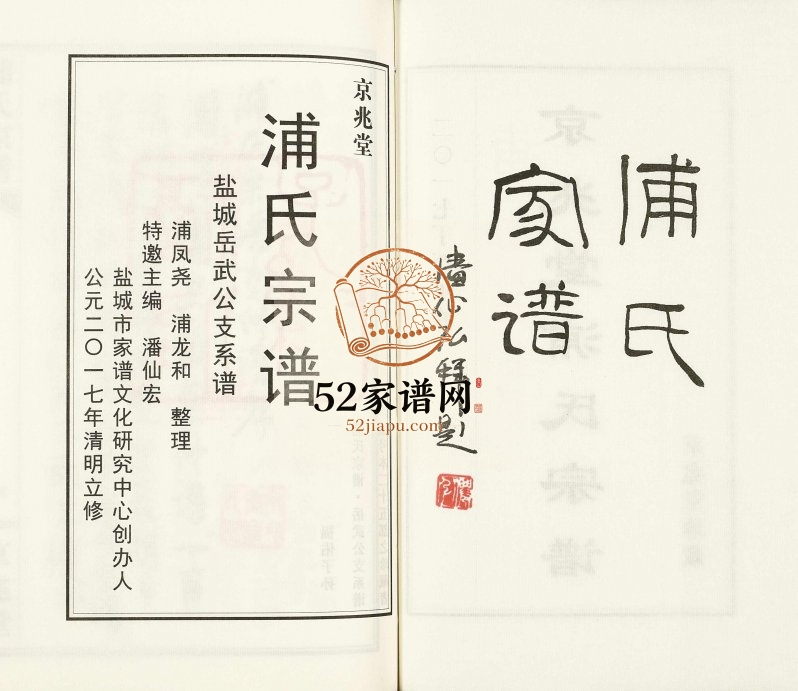 浦氏
家谱
题
京兆堂
浦氏宗谱
盐城岳武公支系谱
浦凤尧 浦龙和 整理
特邀主编 潘仙宏
盐城市家谱文化研究中心创办人
公元二〇一七年清明立修
52家谱网
52jiapu.com